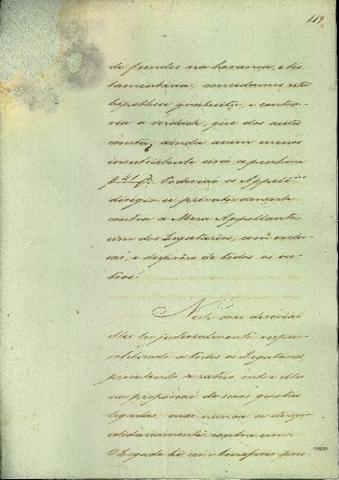 119
de fundos na herança, e tes
tamentaria, concedamos esta
hipothese gratuita, e contra-
ria a verdade, que dos autos
consta, ainda assim menos
insubsistente era a penhora
Poderião os Appell.
dirigir-se privativamente
contra a Meza Appellante
um dos Legatarios, com exclu-
são, e desprêso de todos os ou-
tros?
Neste caso deverião
elles ter judicialmente respon-
sabilisado a todos os Legatarios
procedendo a rateio entre elles
na proporção de suas quotas
legadas, mas nunca se dirigir
solidariamente contra um
O Legado he um beneficio, que